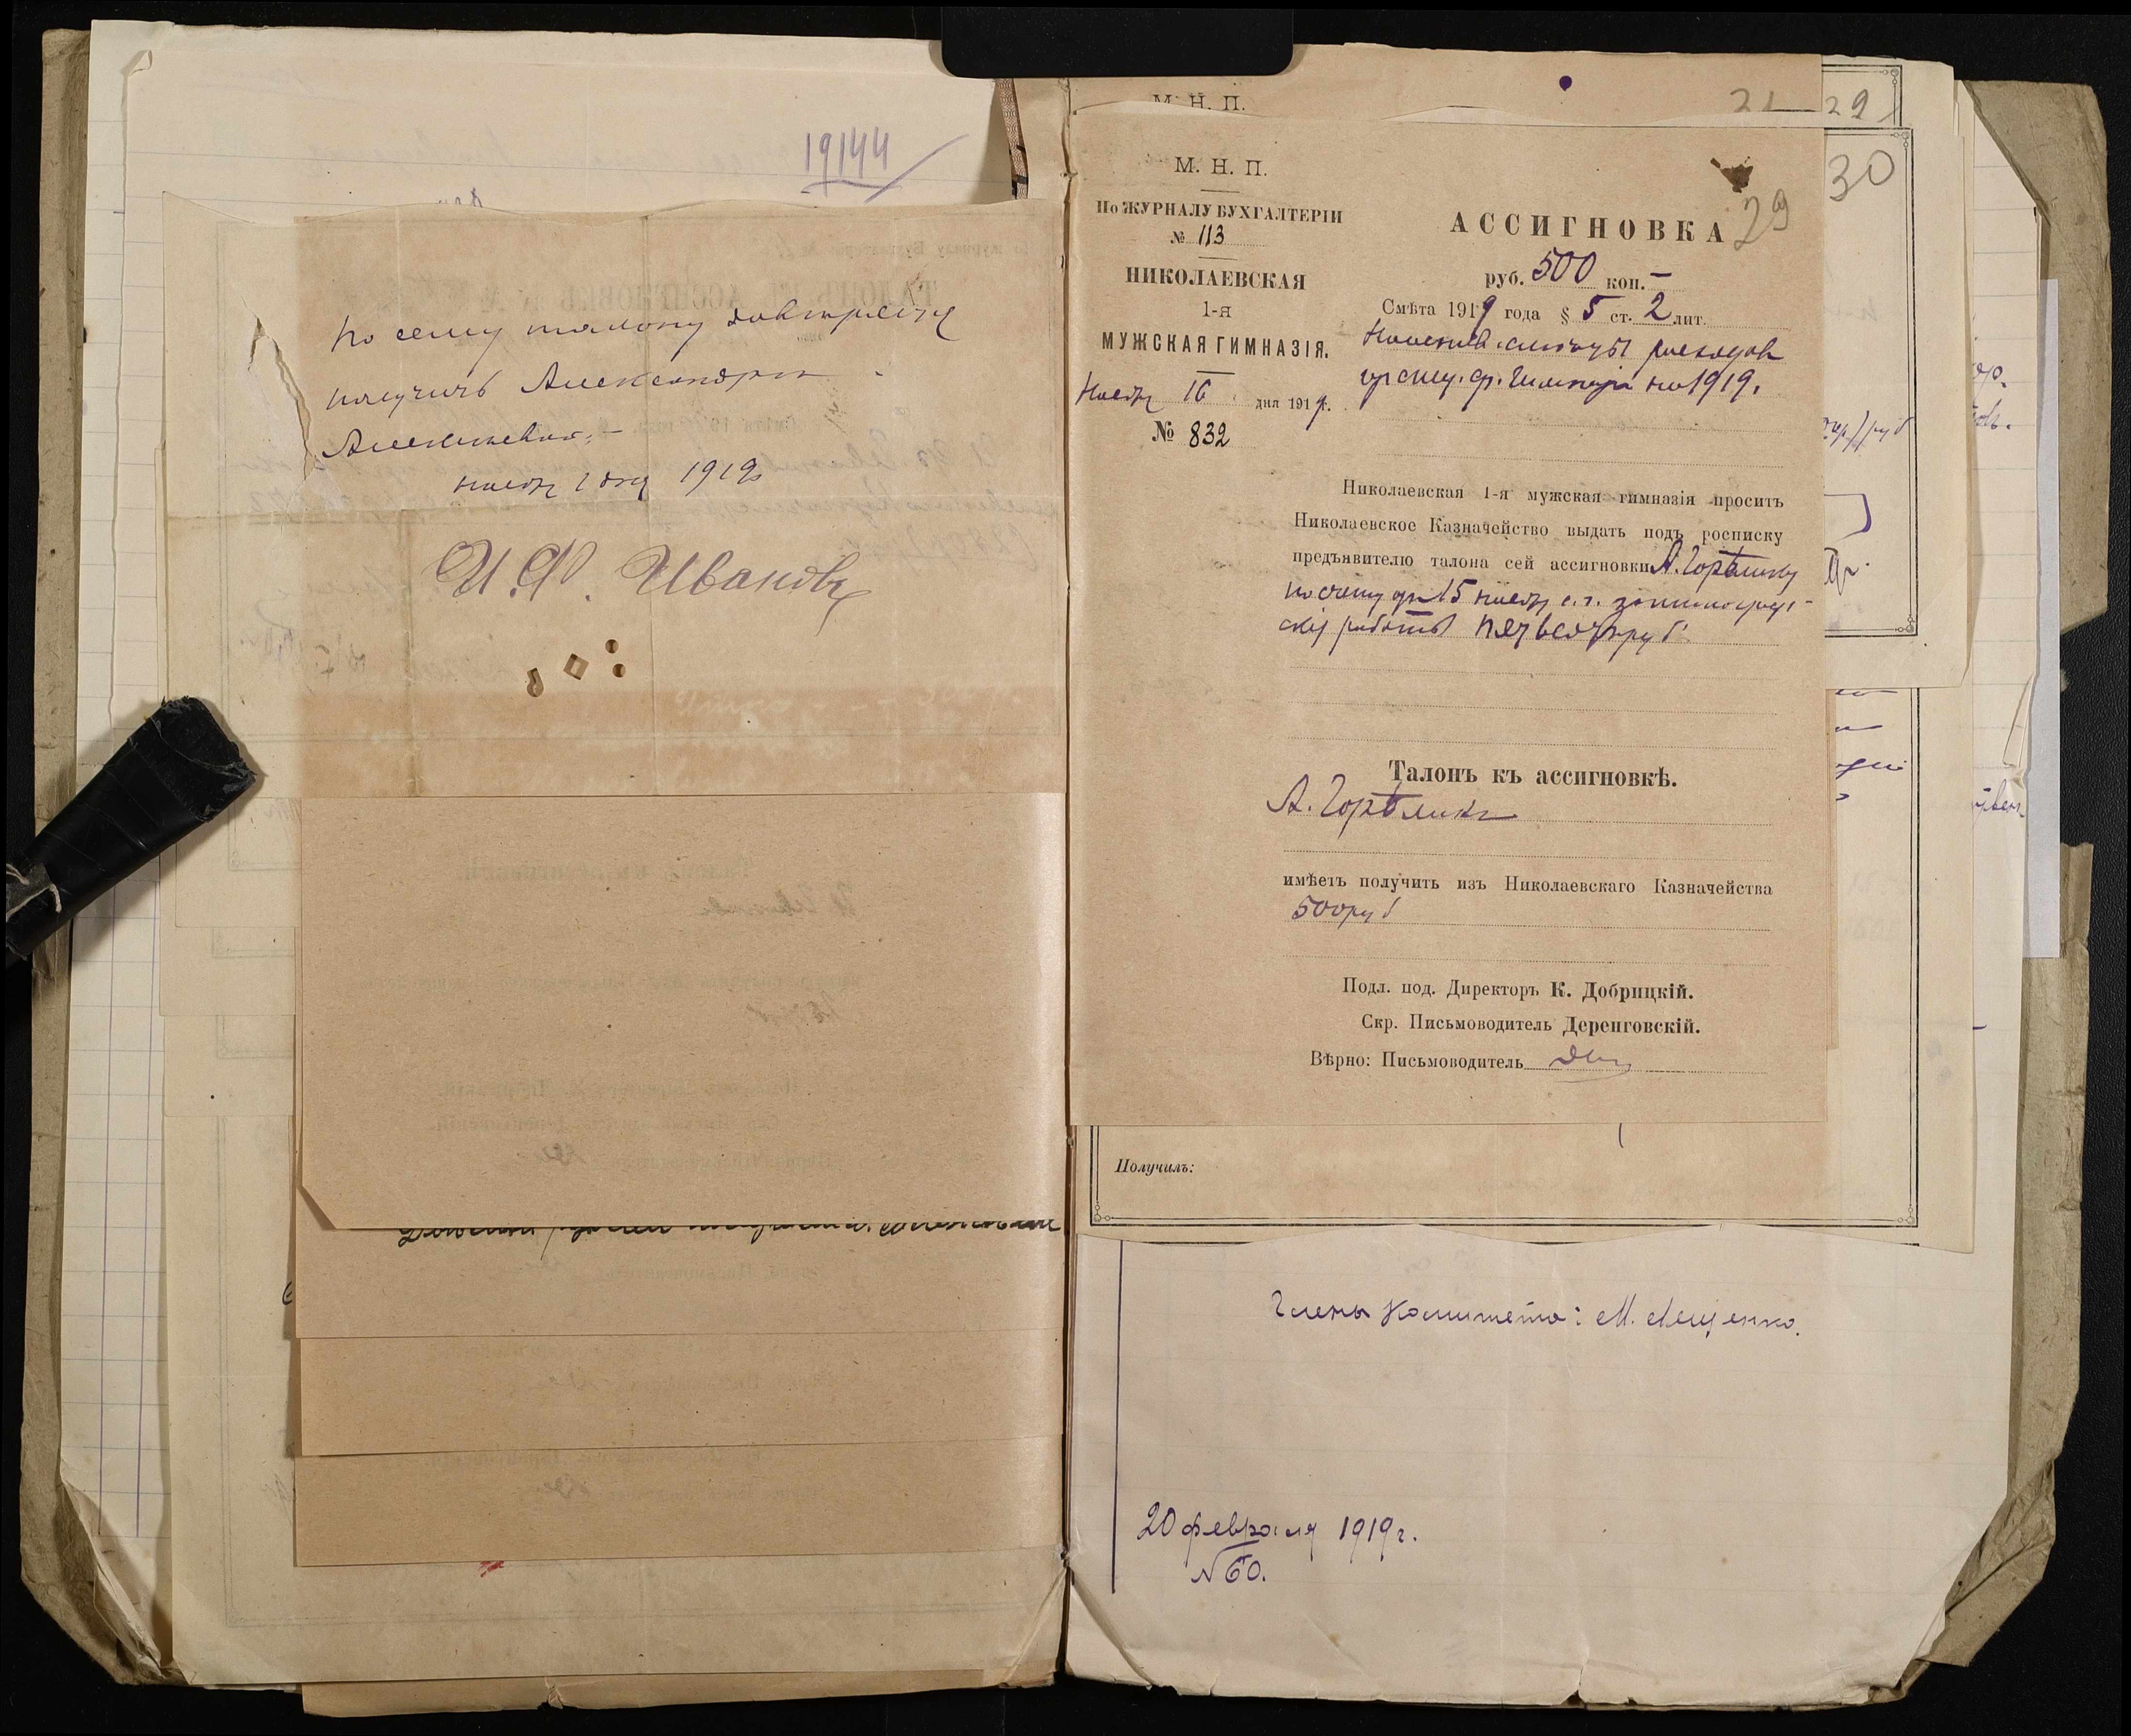 19144
По сему талону доверяю
получить Александрѣ
Алексѣевой. –
ноябр 1 дня 1919
И. Ф. Иванов
М. Н. П.
29
М. Н. П.
30
29
По ЖУРНАЛУ БУХГАЛТЕРІИ
№ 113
НИКОЛАЕВСКАЯ
1-я
МУЖСКАЯ ГИМНАЗІЯ.
Ноябр 16 дня 1919 г.
№ 832
АССИГНОВКА
руб. 500 коп. –
Смѣта 1919 года § 5 ст. 2 лит.
расходов
на 1919.
Николаевская 1-я мужская гимназія проситъ
Николаевское Казначейство выдать подъ росписку
предъявителю талона сей ассигновки А. Горѣлику
по счету от 15 ноябр с.г. за типограф-
скіе работы пятьсот руб.
Талонъ къ ассигновкѣ.
А. Горѣликъ
имѣетъ получить изъ Николаевскаго Казначейства
500 руб
Подл. под. Директоръ К. Добрицкій.
Скр. Письмоводитель Деренговскій.
Вѣрно: Письмоводитель
Получилъ:
Члены Комитета: М. Лещенко.
20 февраля 1919 г.
№ 60.